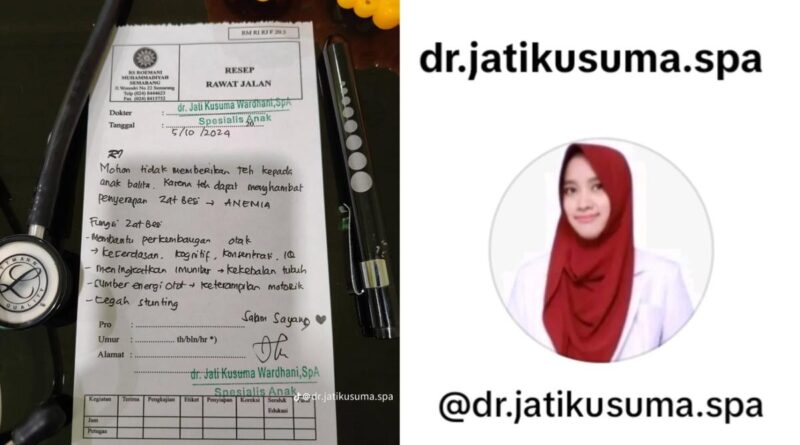 RM RI RJ F 20.3
RS ROEMANI
MUHAMMADIYAH
SEMARANG
Jl. Wonodri No 22 Semarang
Telp (024) 8444623
Fax (024) 8415752
RESEP
RAWAT JALAN
Dokter :
dr. Jati Kusuma Wardhani,SpA
Spesialis Anak
Tanggal : 20
5/10/2024
R/
Mohon tidak memberikan teh kepada
anak balita, karena teh dapat menghambat
penyerapan zat Besi → ANEMIA
Fungsi Zat Besi
- Membantu perkembangan otak
→ kecerdasan, kognitif, konsentrasi, IQ
- meningkatkan imunitas → kekebalan tubuh
- sumber energi otot → keterampilan motorik
- cegah stunting
Salam Sayang ♥
Pro :
Umur : th/bln/hr *)
Alamat :
dr. Jati Kusuma Wardhani,SpA
Spesialis Anak
Kegiatan Terima Pengkajian Etiket Penyiapan Koreksi Serah
Edukasi
Jam
Petugas
@dr.jatikusuma.spa
dr.jatikusuma.spa
@dr.jatikusuma.spa